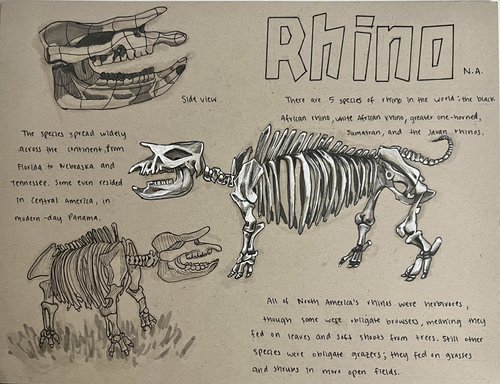 Rhino
N.A.
Side view
There are 5 species of rhino in the world: the black
African rhino, white African rhino, greater one-horned,
Sumatran, and the Javan rhinos.
The species spread widely
across the continent, from
Florida to Nebraska and
Tennessee. Some even resided
in Central America, in
modern-day Panama.
All of North America's rhinos were herbivores,
though some were obligate browsers, meaning they
fed on leaves and soft shoots from trees. Still other
species were obligate grazers; they fed on grasses
and shrubs in more open fields.